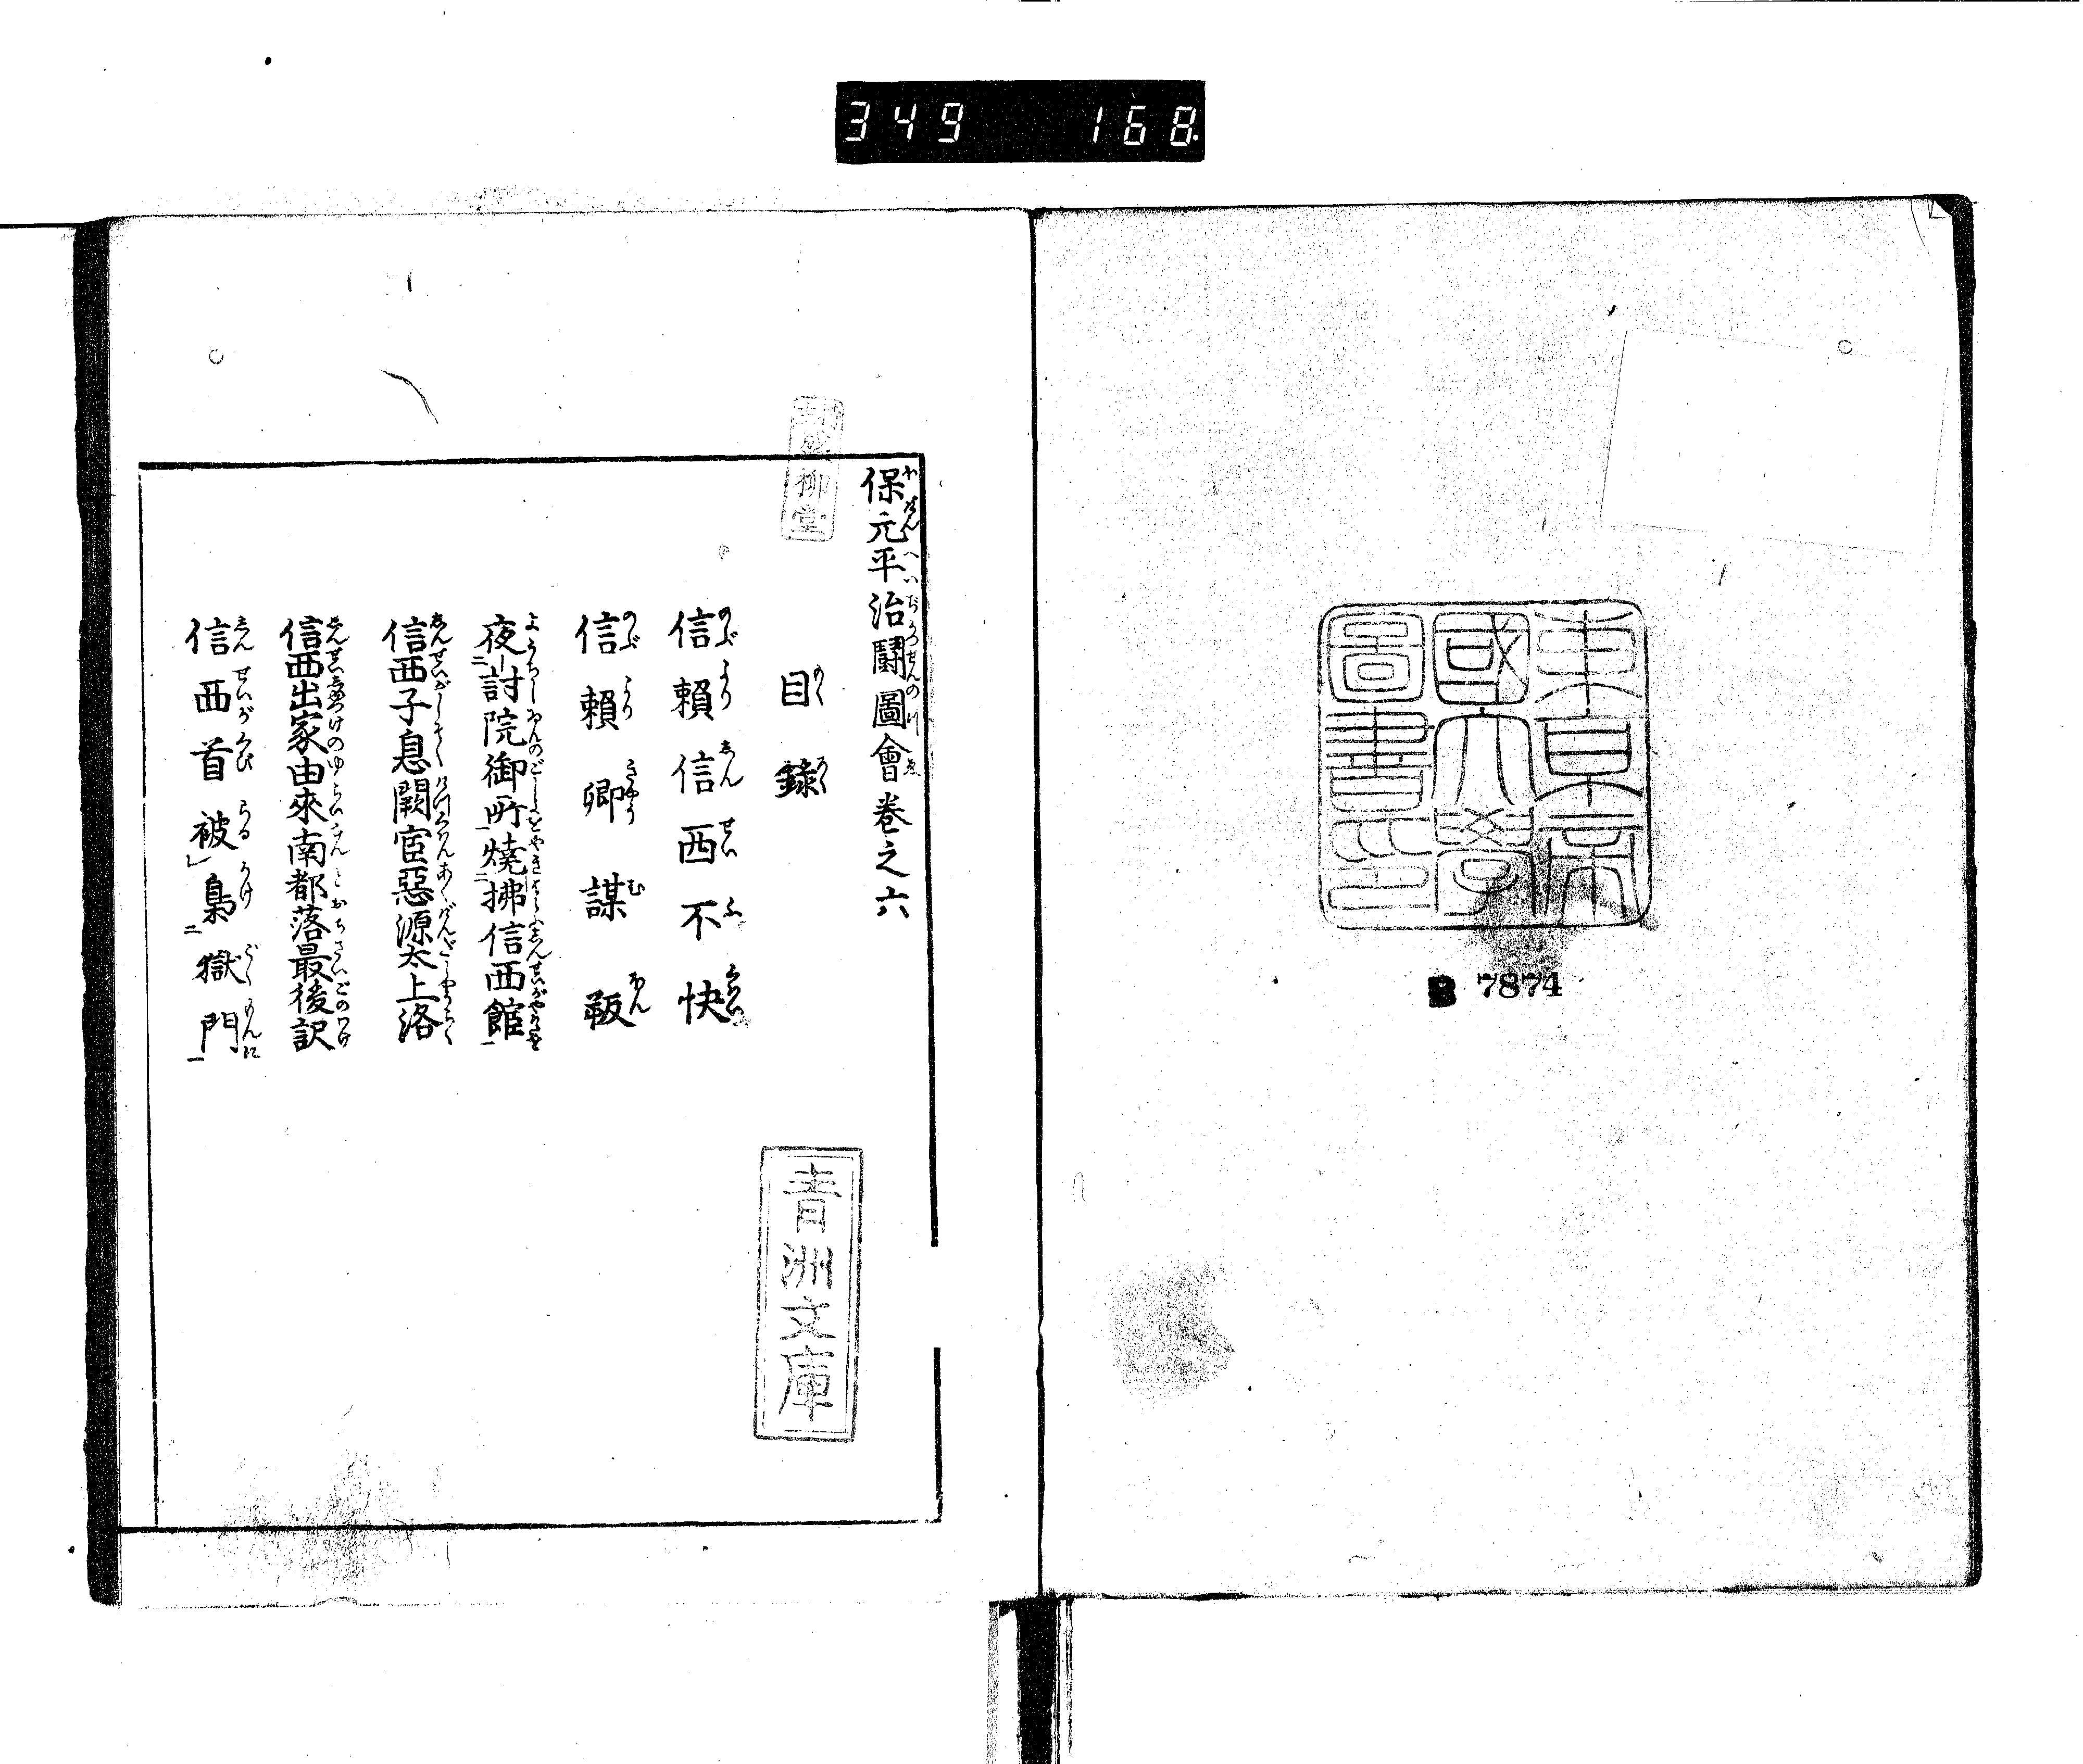 349 168
東京帝
國大學
圖書之印
B 7874
保元平治鬪圖會巻之六
目錄
信賴信西不快
信賴卿謀叛
夜討院御所燒拂信西館
信西子息闕官惡源太上洛
信西出家由來南都落最後訳
信西首被梟獄門
柳堂
青洲文庫